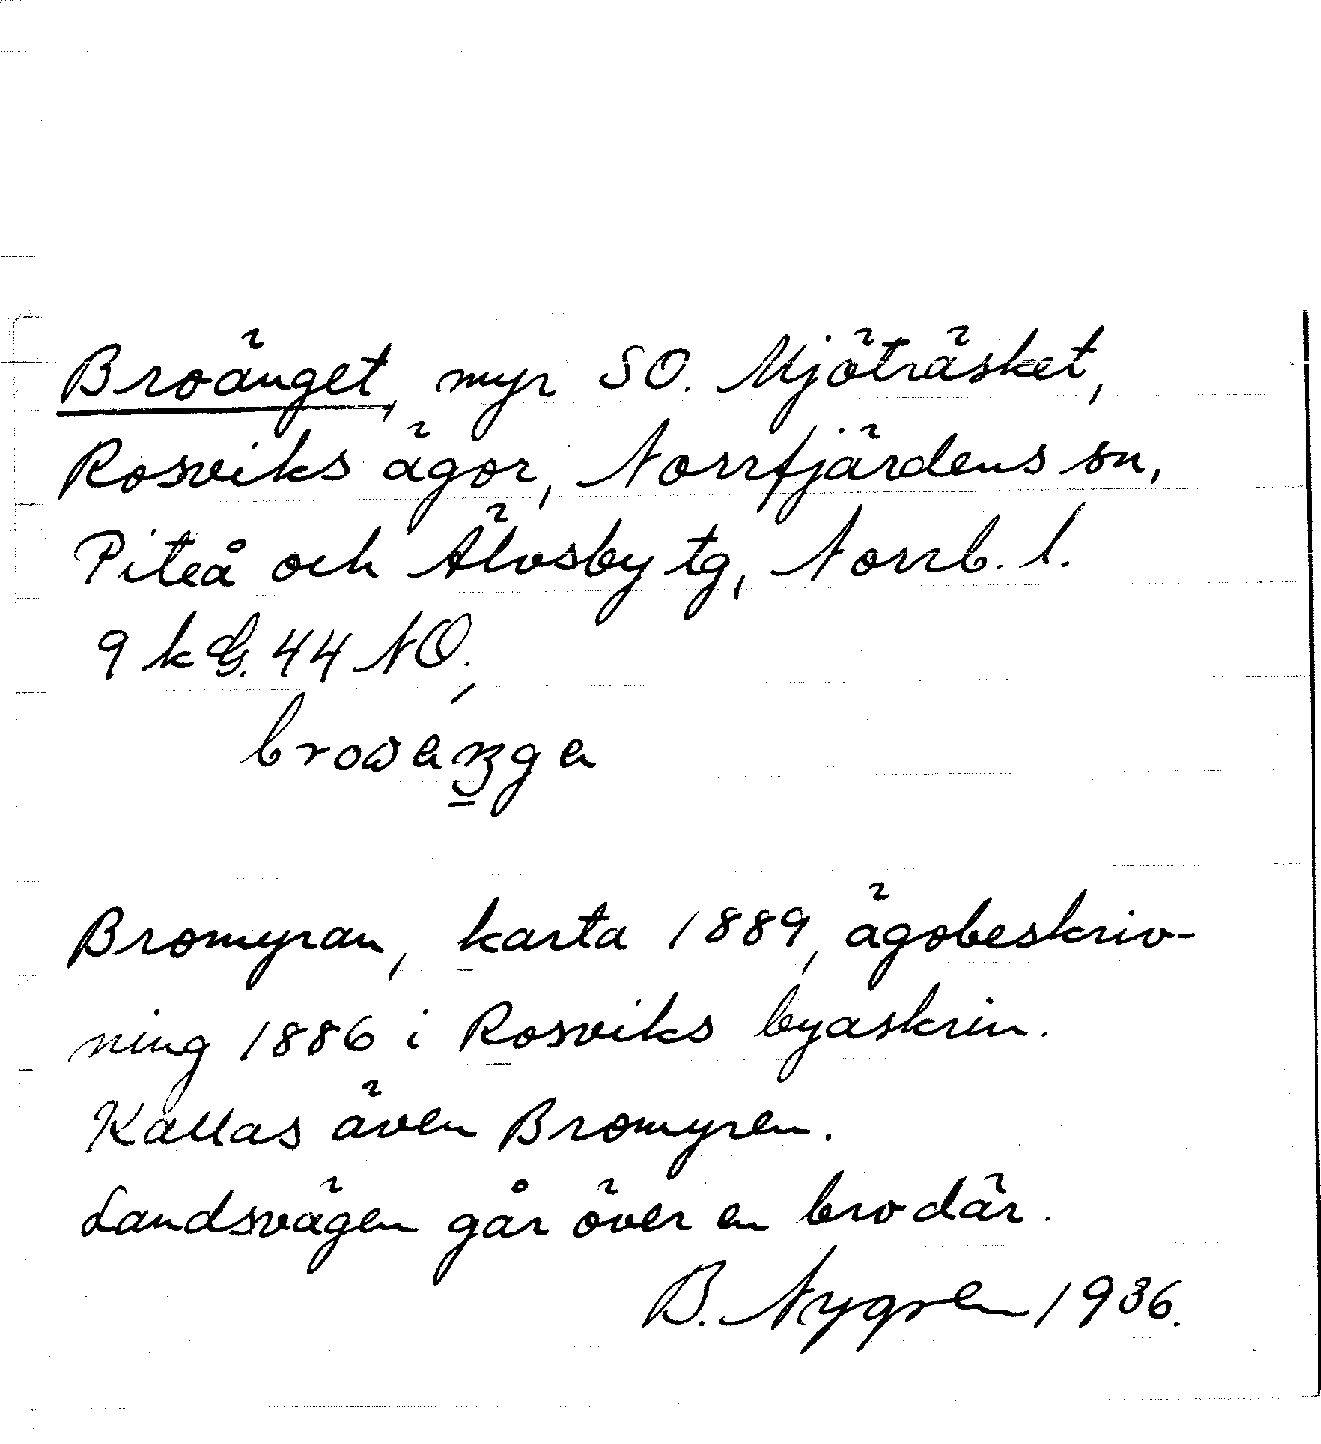 Broänget, myr SO. Mjöträsket,
Rosviks ägor, Norrfjärdens sn,
Piteå och Älvsby tg, Norrb. l.
9 k G. 44 NO.
Bromyran, karta 1889, ägobeskriv-
ning 1886 i Rosviks byaskrin.
Kallas även Bromyren.
Landsvägen går över en bro där.
B. Nygren 1936.